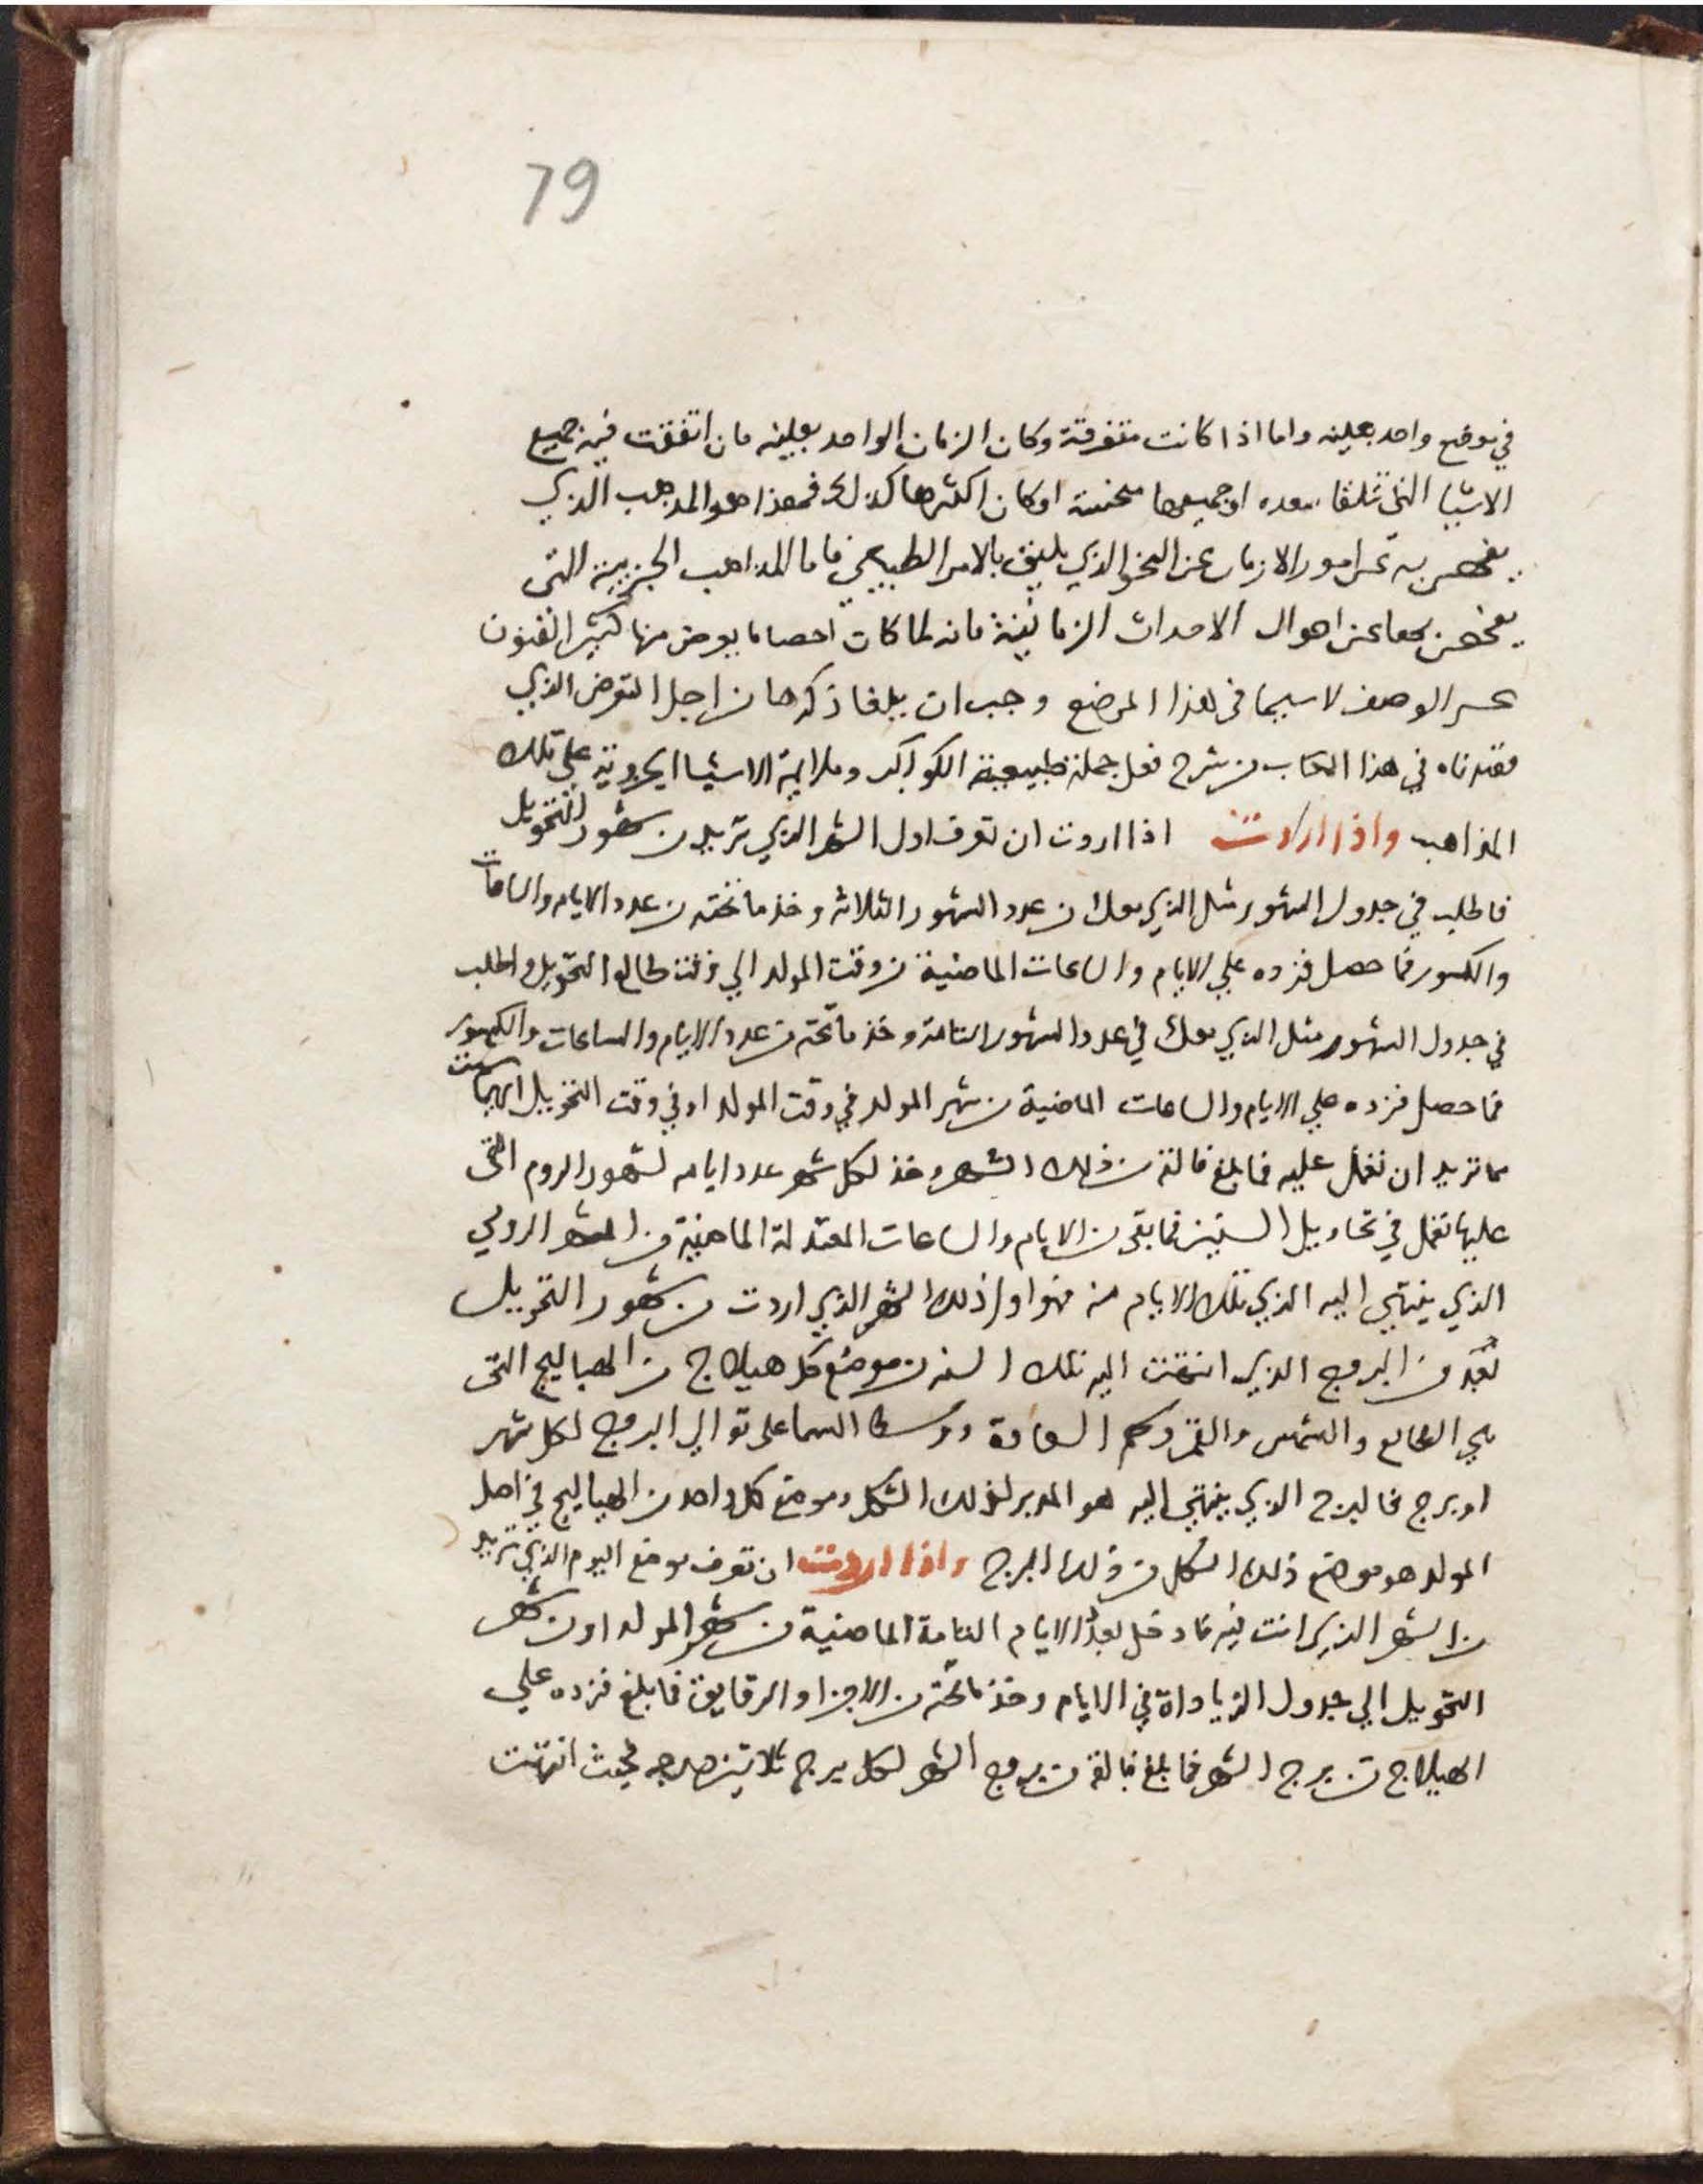 79
في موضع واحد بعينه واما اذا كانت متفرقة وكان الزمان الواحد بعينه مان اتفقت فيه جميع
الاشيا التي تلقا بعده او جميعها محنسة او كان اكثرها كذلك فهذا هو المذهب الذي
يفحص به عن امور الازمان عن النحو الذي يليق بالامر الطبيعي فاما المذاهب الجزيية التي
يفحص بها عن احوال الاحداث الزمانية فانه لما كان احصا ما يعرض منها كثير الفنون
عسر الوصف لاسيما في هذا الموضع وجب ان يلغا ذكرها من اجل الغرض الذي
قصدناه في هذا الكتاب من شرح فعل جملة طبيعية الكواكب وملايمة الاشيا الجزوية علي تلك
المذاهب واذا اردت اذا اردت ان تعرف اول الشهر الذي تريد من شهور التحويل
فاطلب في جدول الشهور مثل الذي معك من عدد الشهور الثلاثه وخذ ما تحته من عدد الايام والساعات
والكسور فما حصل فزده علي الايام والساعات الماضية من وقت المولد الي وقت طالع التحويل واطلب
في جدول الشهور مثل الذي معك في عدد الشهور التامة وخذ ما تحته من عدد الايام والساعات والكسور
فما حصل فزده علي الايام والساعات الماضية من شهر المولد في وقت المولد او في وقت التحويل ايهما شيت
مما تريد ان تعمل عليه فما بلغ فالقه من ذلك الشهر وخذ لكل شهر عدد ايامه لشهور الروم التي
عليها تعمل في تحاويل السنين فما بقي من الايام والساعات المعتدلة الماضية من الشهر الرومي
الذي ينتهي اليه الذي تلك الايام منه فهو اول ذلك الشهر الذي اردت من شهور التحويل
تعد من البروج الذي انتهت اليه تلك السنه من موضع كل هيلاج من الهياليج التي
هي الطالع والشمس والقمر وسهم السعادة ووسط السما علي توالي البروج لكل شهر
او برج فالبرج الذي ينتهي اليه هو المدبر لذلك الشكل وموضع كل واحد من الهياليج في اصل
المولد هو موضع ذلك الشكل من ذلك البرج واذا اردت ان تعرف موضع اليوم الذي تريد
من الشهر الذي انت فيه فادخل بعدد الايام التامة الماضية من شهر المولد او من شهر
التحويل الي جدول الزياداة في الايام وخذ ما تحته من الاجزا والدقايق فما بلغ فزده علي
الهيلاج من برج الشهر فما بلغ فالقه من بروج الشهر لكل برج ثلاثين درجه فحيث انتهت